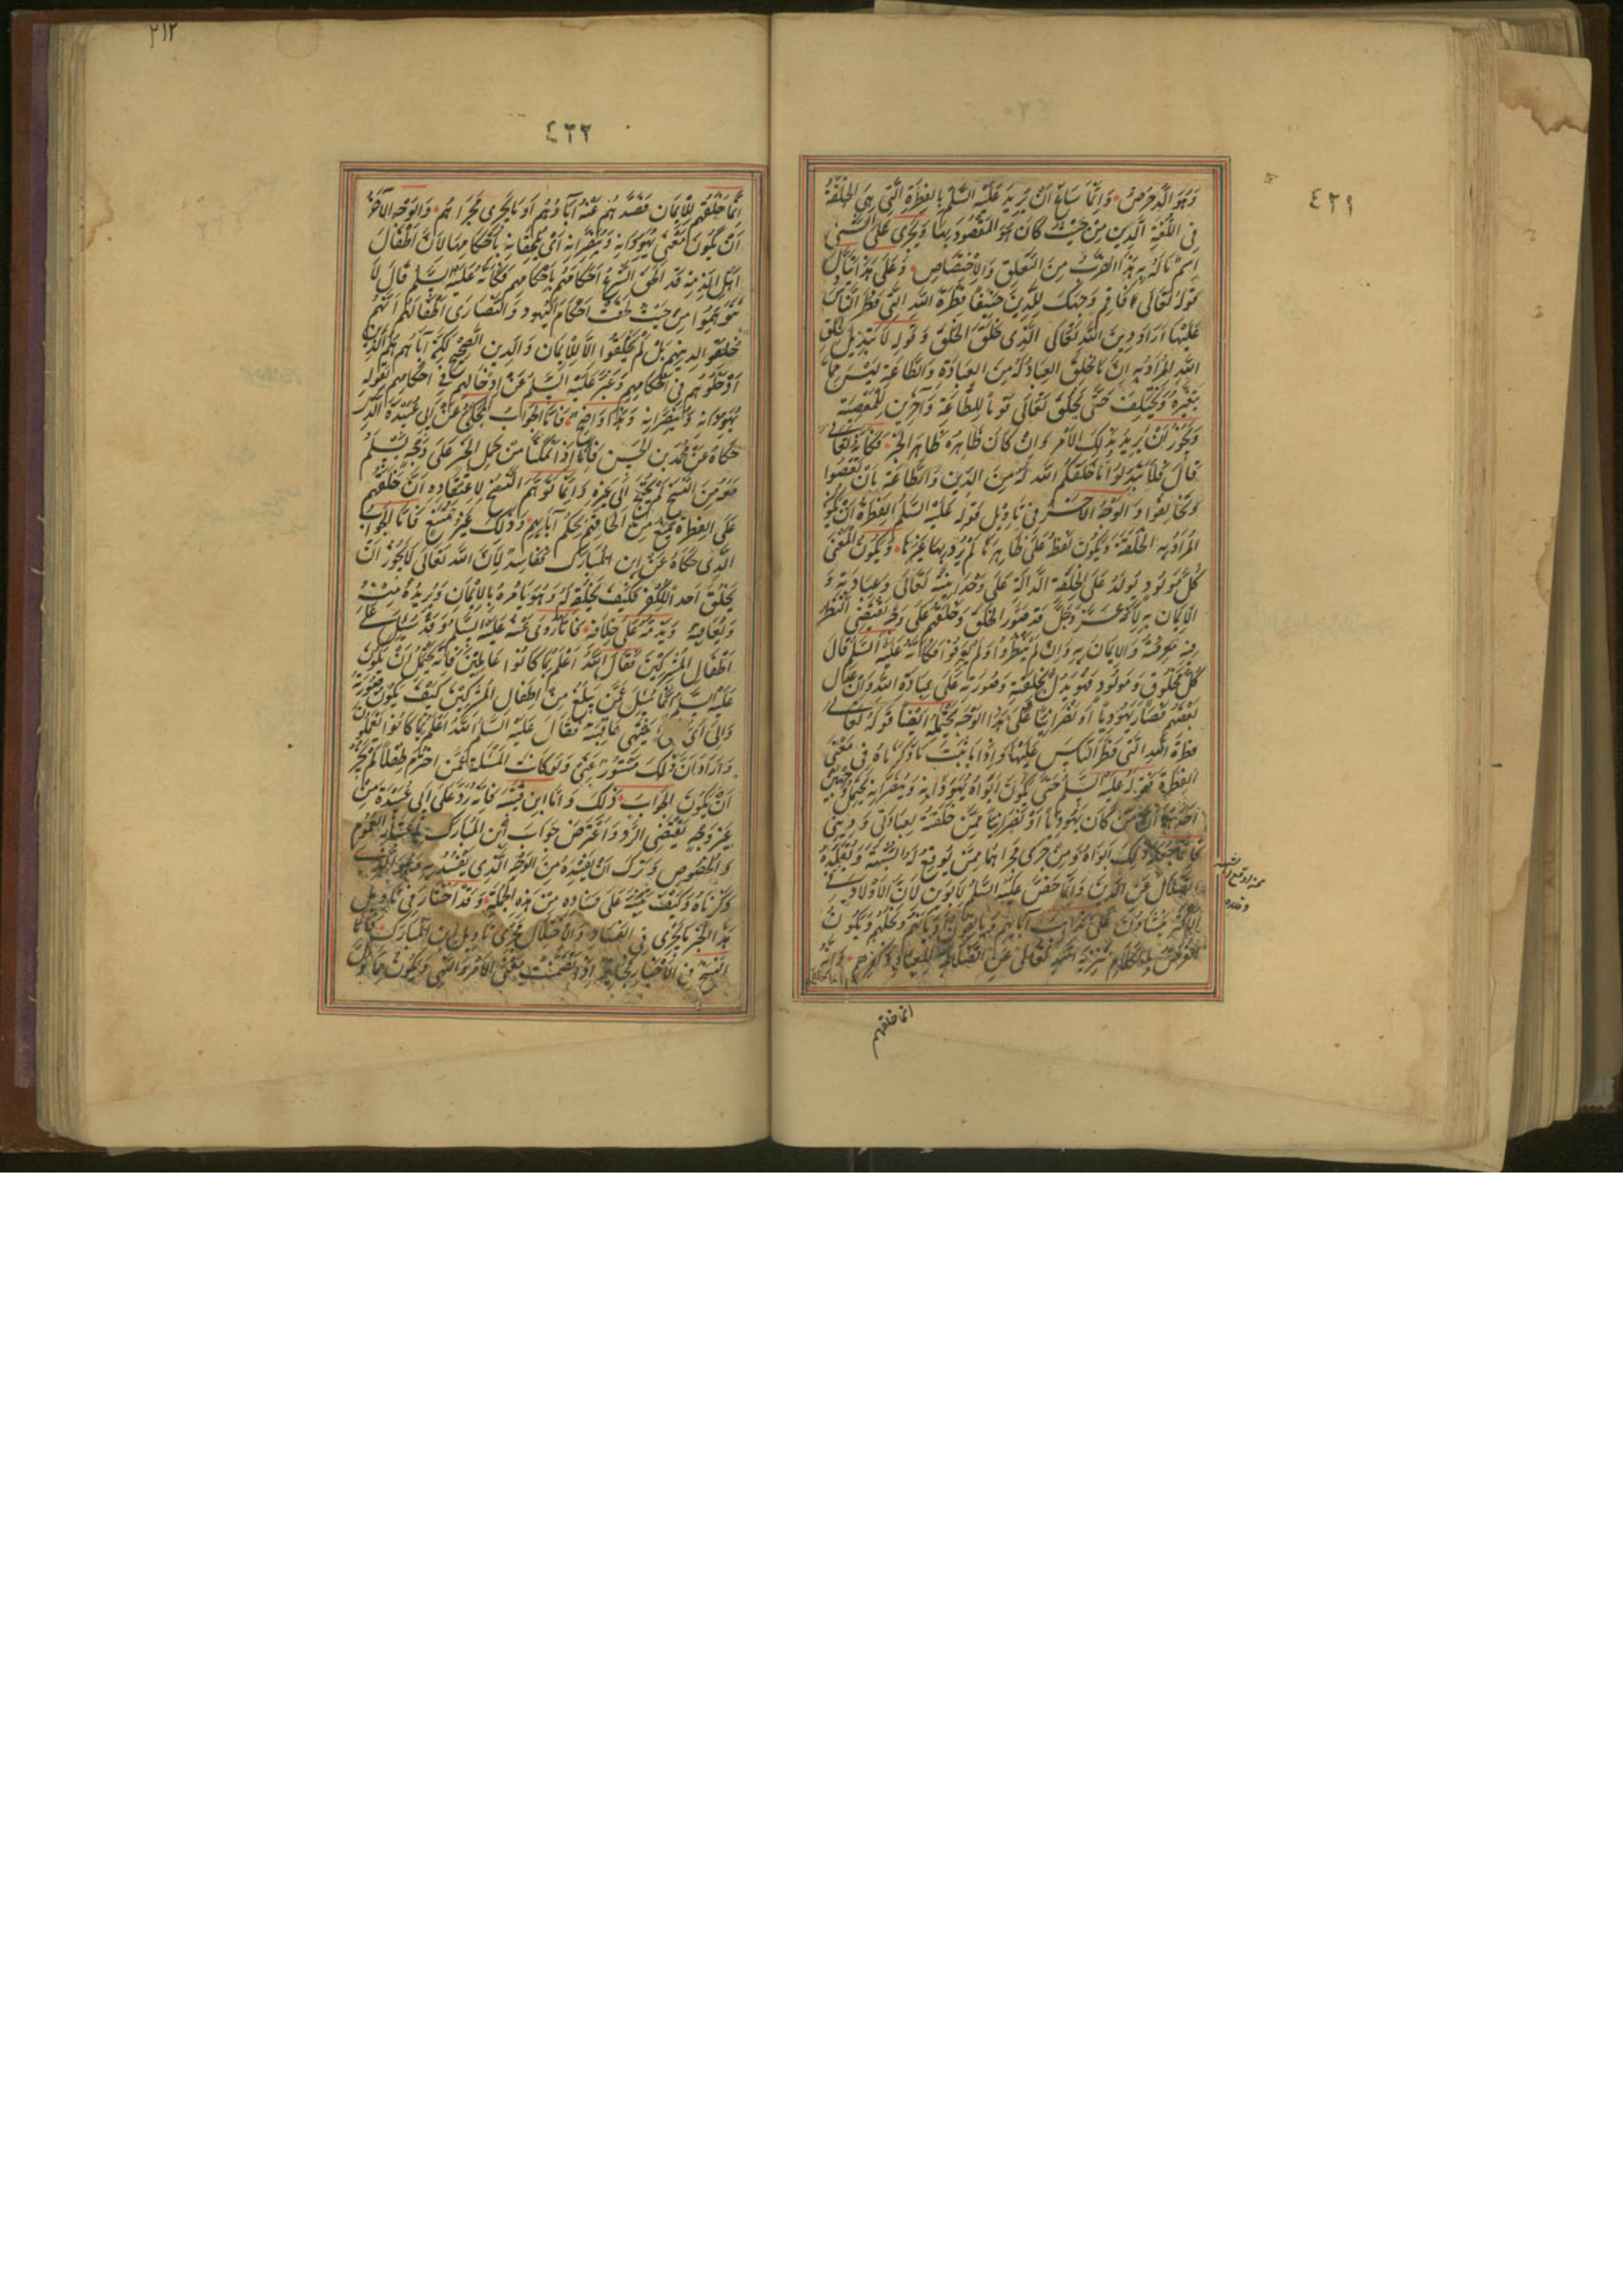 ٤٢١
وَهُوَ الدِّينُ وَإِنَّمَا سَاغَ أَنْ يُرِيدَ عَلَيْهِ السَّلَم بِالفِطْرَةِ الَّتِي هِيَ الخِلْقَةُ
فِي اللُّغَةِ الدِّينَ مِنْ حَيْثُ كَانَ هُوَ المَقْصُودَ بِهَا وَيَجْرِي عَلَى الشَّيْ
اسْمُ مَا لَهُ بِهِ هَذَا الضَّرْبُ مِنَ التَّعَلُّقِ وَالاِخْتِصَاصِ وَعَلَى هَذَا يَتَأَوَّلُ
قَوْلُهُ تَعَالَى فَأَقِمْ وَجْهَكَ لِلدِّينِ حَنِيفًا فِطْرَةَ اللَّهِ الَّتِي فَطَرَ النَّاسَ
عَلَيْهَا أَرَادَ دِينَ اللَّهِ تَعَالَى الَّذِي خَلَقَ الخَلْقَ وَقَوْلُه لَا تَبْدِيلَ لِخَلْقِ
اللَّهِ المُرَادُ بِهِ أَنَّ مَا خَلَقَ العِبَادَ لَهُ مِنَ العِبَادَةِ وَالطَّاعَةِ لَيْسَ مِمَّا
يَتَغَيَّرُ وَيَخْتَلِفُ حَتَّى يَخْلُقَ تَعَالَى قَوْمًا لِلطَّاعَةِ وَآخَرِينَ لِلْمَعْصِيَةِ
وَيَجُوزُ أَنْ يُرِيدَ بِذَلِكَ الأَمْرَ وَإِنْ كَانَ ظَاهِرُهُ ظَاهِرَ الخَبَرِ فَكَأَنَّهُ تَعَالَى
قَالَ فَلَا تُبَدِّلُوا مَا خَلَقَكُمُ اللَّه لَهُ مِنَ الدِّينِ وَالطَّاعَةِ بِأَنْ تَعْصُوا
وَتُخَالِفُوا وَالوَجْهُ الآخَرُ فِي تَأْوِيلِ قَوْلِهِ عَلَيْهِ السَّلَم الفِطْرَةُ أَنْ يَكُونَ
المُرَادُ بِهِ الخِلْقَةَ وَيَكُونَ لَفْظُ عَلَى ظَاهِرِهَا لَمْ يُرِدْ بِهَا غَيْرَهَا وَيَكُونَ المَعْنَى
كُلُّ مَوْلُودٍ يُولَدُ عَلَى الخِلْقَةِ الدَّالَّةِ عَلَى وَحْدَانِيَّةِ تَعَالَى وَعِبَادَتِهِ وَ
الإِيمَانِ بِهِ لِأَنَّهُ عَزَّ وَجَلَّ قَدْ صَوَّرَ الخَلْقَ وَخَلَقَهُمْ عَلَى وَجْهٍ يَقْتَضِي النَّظَرَ
فِيهِ مَعْرِفَتَهُ وَالإِيمَانَ بِهِ وَإِنْ لَمْ يَنْظُرُوا وَلَمْ يَعْرِفُوا فَكَأَنَّهُ عَلَيْهِ السَّلَم قَالَ
كُلُّ مَخْلُوقٍ وَمَوْلُودٍ فَهُوَ يَدُلُّ بِخِلْقَتِهِ وَصُورَتِهِ عَلَى عِبَادَةِ اللَّهِ وَإِنْ عَدَلَ
بَعْضُهُمْ فَصَارَ يَهُودِيًّا أَوْ نَصْرَانِيًّا وَعَلَى هَذَا الوَجْهِ يُحْمَلُ أَيْضًا قَوْلُهُ تَعَالَى
فِطْرَةَ اللَّهِ الَّتِي فَطَرَ النَّاسَ عَلَيْهَا وَإِذَا ثَبَتَ مَا ذَكَرْنَاهُ فِي مَعْنَى
الفِطْرَةِ فَقَوْلُهُ عَلَيْهِ السَّلَم حَتَّى يَكُونَ أَبَوَاهُ يُهَوِّدَانِهِ وَيُنَصِّرَانِهِ يَحْتَمِلُ وَجْهَيْنِ
أَحَدُهُمَا أَنَّ مَنْ كَانَ يَهُودِيًّا أَوْ نَصْرَانِيًّا مِمَّنْ خَلَقْتُهُ لِعِبَادَتِي وَدِينِي
فَإِنَّمَا جَعَلَهُ كَذَلِكَ أَبَوَاهُ وَمَنْ جَرَى مَجْرَاهُمَا مِمَّنْ يُوقِعُ لَهُ الشُّبْهَةَ وَيُقَلِّدُهُ
الضَّلَالَ عَنِ الدِّينِ وَإِنَّمَا خَصَّ عَلَيْهِ السَّلَم الأَبَوَيْنِ لِأَنَّ الأَوْلَادَ فِي
الأَكْثَرِ يَنْشَأُونَ عَلَى مَذَاهِبِ آبَائِهِمْ وَيَأْلَفُونَ أَدْيَانَهُمْ وَنِحَلَهُمْ وَيَكُونُ
الغَرَضُ بِالكَلَامِ تَنْزِيهَ اللَّهِ تَعَالَى عَنِ الضَّلَالِ لِلعِبَادِ وَكُفْرِهِمْ وَأَنَّهُ
انما خلقهم
٢١٢
٤٢٢
إِنَّمَا خَلَقَهُمْ لِلْإِيمَانِ فَصَدَّهُمْ عَنْهُ آبَاؤُهُمْ أَوْ مَا يَجْرِي مَجْرَاهُمْ وَالوَجْهُ الآخَرُ
أَنْ يَكُونَ مَعْنَى يُهَوِّدَانِهِ وَيُنَصِّرَانِهِ أَيْ يُلْحِقَانِهِ بِأَحْكَامِهِمَا لِأَنَّ أَطْفَالَ
أَهْلِ الذِّمَّةِ قَدْ أَلْحَقَ الشَّرْعُ أَحْكَامَهُمْ بِأَحْكَامِهِمْ فَكَأَنَّهُ عَلَيْهِ السَّلَم قَالَ لَا
تَتَوَهَّمُوا مِنْ حَيْثُ لَحِقَتْ أَحْكَامُ اليَهُودِ وَالنَّصَارَى أَطْفَالَهُمْ أَنَّهُمْ
خُلِقُوا لِدِينِهِمْ بَلْ لَمْ يُخْلَقُوا إِلَّا لِلْإِيمَانِ وَالدِّينِ الصَّحِيحِ لَكِنَّ آبَاءَهُمْ هُمُ الَّذِينَ
أَدْخَلُوهُمْ فِي أَحْكَامِهِمْ وَعَبَّرَ عَلَيْهِ السَّلَم عَنْ إِدْخَالِهِمْ فِي أَحْكَامِهِمْ بِقَوْلِهِ
يُهَوِّدَانِهِ وَيُنَصِّرَانِهِ وَهَذَا وَاضِحٌ فَأَمَّا الجَوَابُ المَحْكِيُّ عَنْ أَبِي عُبَيْدَةَ الَّذِي
حَكَاهُ عَنْ مُحَمَّدِ بْنِ الحَسَنِ فَإِنَّا إِذَا تَمَكَّنَّا مِنْ حَمْلِ الخَبَرِ عَلَى وَجْهٍ يَسْلَمُ
مَعَهُ مِنَ النَّسْخِ لَمْ نَحْتَجْ إِلَى غَيْرِهِ وَإِنَّمَا تَوَهَّمَ النَّسْخَ لِاعْتِقَادِهِ أَنَّ خَلْقَهُمْ
عَلَى الفِطْرَةِ يَمْنَعُ مِنْ إِلْحَاقِهِمْ بِحُكْمِ آبَائِهِمْ وَذَلِكَ غَيْرُ مُمْتَنِعٍ فَأَمَّا الجَوَابُ
الَّذِي حَكَاهُ عَنْ ابْنِ المُبَارَكِ فَفَاسِدٌ لِأَنَّ اللَّهَ تَعَالَى لَا يَجُوزُ أَنْ
يَخْلُقَ أَحَدًا لِلْكُفْرِ فَكَيْفَ يَخْلُقُهُ لَهُ وَهُوَ يَأْمُرُهُ بِالإِيمَانِ وَيُرِيدُهُ مِنْهُ
وَيُعَاقِبُهُ وَيَذُمُّهُ عَلَى خِلَافِهِ فَأَمَّا مَا رُوِيَ عَنْهُ عَلَيْهِ السَّلَم وَقَدْ سُئِلَ عَنْ
أَطْفَالِ المُشْرِكِينَ فَقَالَ اللَّهُ أَعْلَمُ بِمَا كَانُوا عَامِلِينَ فَإِنَّهُ يَحْتَمِلُ أَنْ يَكُونَ
عَلَيْهِ السَّلَم إِنَّمَا سُئِلَ عَمَّنْ يَبْلُغُ مِنْ أَطْفَالِ المُشْرِكِينَ كَيْفَ يَكُونُ صُورَتُهُ
وَإِلَى أَيِّ يَنْتَهِي عَاقِبَتُهُ فَقَالَ عَلَيْهِ السَّلَم اللَّهُ أَعْلَمُ بِمَا كَانُوا يَعْمَلُونَ
وَأَرَادَ أَنَّ ذَلِكَ مَسْتُورٌ عَنِّي وَلَو كَانَتِ المَسْئَلَةُ عَمَّنِ اخْتُرِمَ طِفْلًا لَمْ يَجُزْ
أَنْ يَكُونَ الجَوَابُ ذَلِكَ وَأَمَّا ابْنُ قُتَيْبَةَ فَإِنَّهُ رَدَّ عَلَى أَبِي عُبَيْدَةَ مِنْ
غَيْرِ وَجْهٍ يَقْتَضِي الرَّدَّ وَاعْتَرَضَ جَوَابَ ابْنِ المُبَارَكِ بِاعْتِبَارِ العُمُومِ
وَالخُصُوصِ وَتَرَكَ أَنْ يُفْسِدَهُ مِنَ الوَجْهِ الَّذِي يَفْسُدُ بِهِ وَهُوَ الَّذِي
ذَكَرْنَاهُ وَكَيْفَ يُنَبِّهُ عَلَى فَسَادِهِ مِنْ هَذِهِ الجِهَةِ وَقَدِ اخْتَارَ فِي تَأْوِيلِ
هَذَا الخَبَرِ مَا يَجْرِي فِي الفَسَادِ وَالاِخْتِلَالِ مَجْرَى تَأْوِيلِ ابْنِ المُبَارَكِ فَأَمَّا
النَّسْخُ فِي الأَخْبَارِ فَجَائِزٌ إِذَا تَضَمَّنَتْ مَعْنَى الأَمْرِ وَالنَّهْيِ وَيَكُونُ